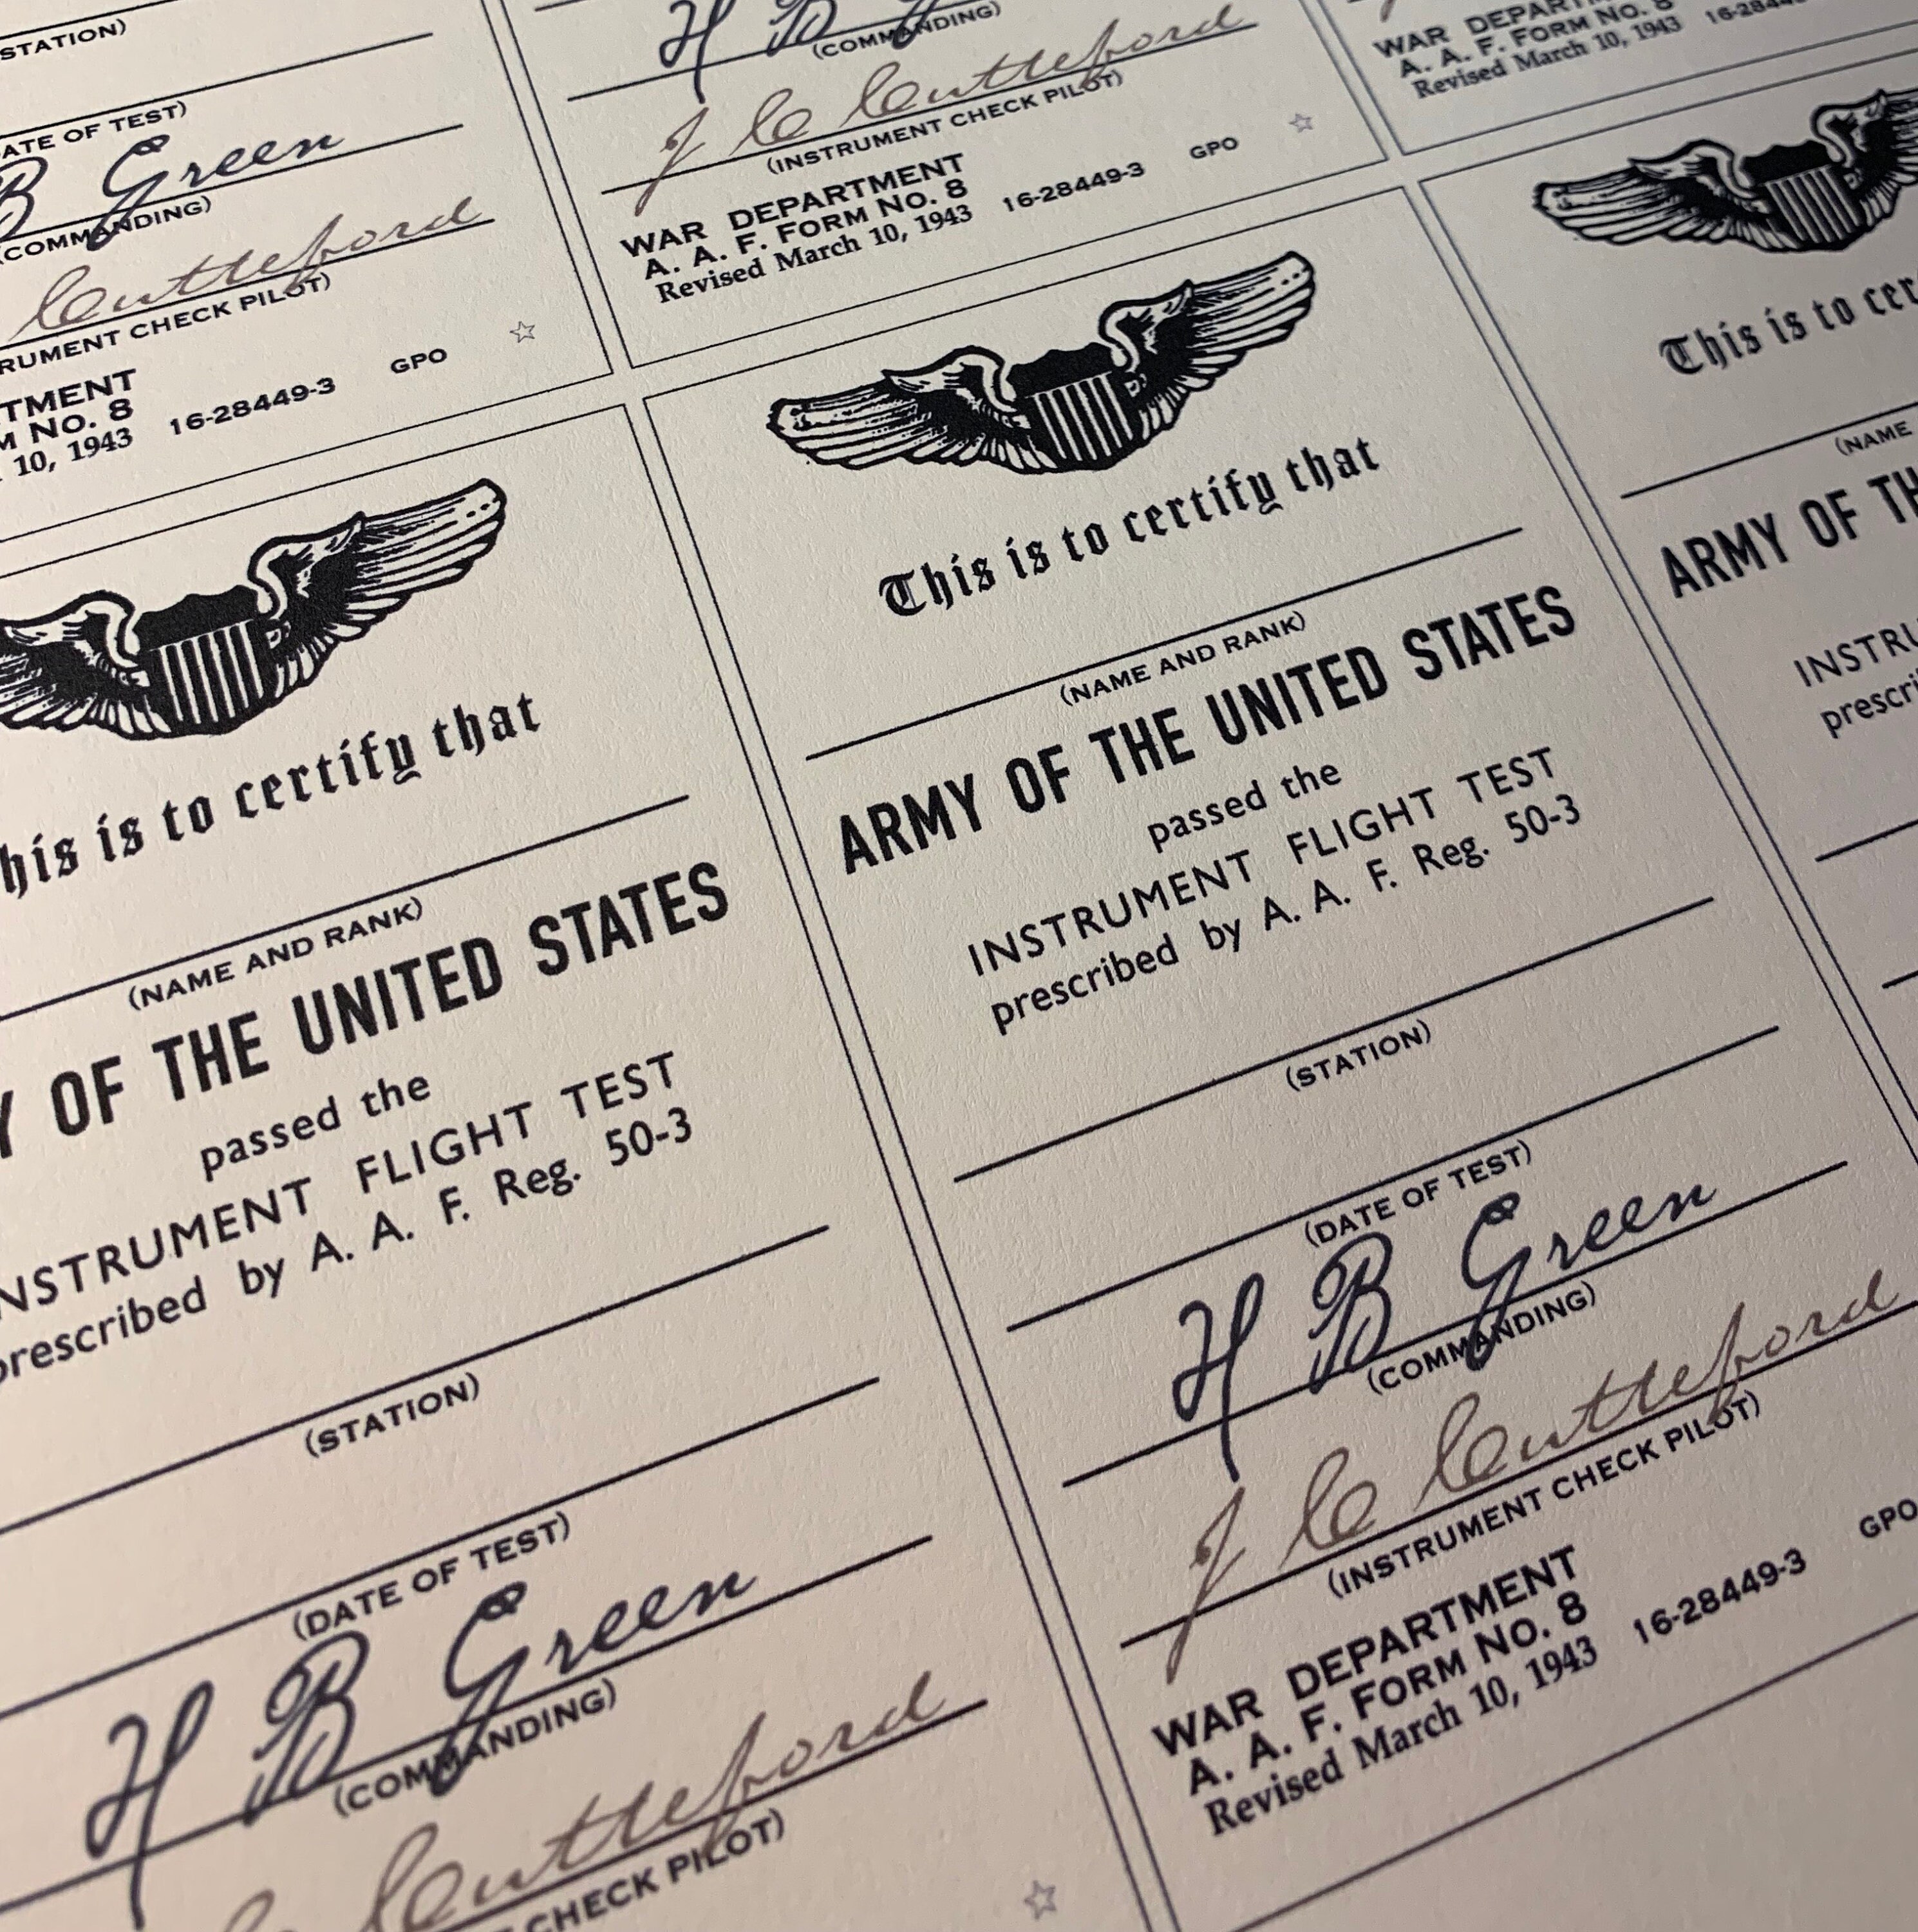 STATION)
DATE OF TEST)
B Green
(COMMANDING)
Cuttleford
RUMENT CHECK PILOT)
TMENT
M NO. 8
10, 1943 16-28449-3 GPO ☆
H B G
(COMMANDING)
J C Cuttleford
(INSTRUMENT CHECK PILOT)
WAR DEPARTMENT
A. A. F. FORM NO. 8
Revised March 10, 1943 16-28449-3 GPO ☆
WAR DEPARTM
A. A. F. FORM NO. 8
Revised March 10, 1943 16-2844
his is to certify that
(NAME AND RANK)
Y OF THE UNITED STATES
passed the
INSTRUMENT FLIGHT TEST
prescribed by A. A. F. Reg. 50-3
(STATION)
(DATE OF TEST)
H B Green
(COMMANDING)
Cuttleford
CHECK PILOT)
☆
This is to certify that
(NAME AND RANK)
ARMY OF THE UNITED STATES
passed the
INSTRUMENT FLIGHT TEST
prescribed by A. A. F. Reg. 50-3
(STATION)
(DATE OF TEST)
H B Green
(COMMANDING)
J C Cuttleford
(INSTRUMENT CHECK PILOT)
WAR DEPARTMENT
A. A. F. FORM NO. 8
Revised March 10, 1943 16-28449-3 GPO
This is to cer
(NAME
ARMY OF TH
INSTRU
prescri